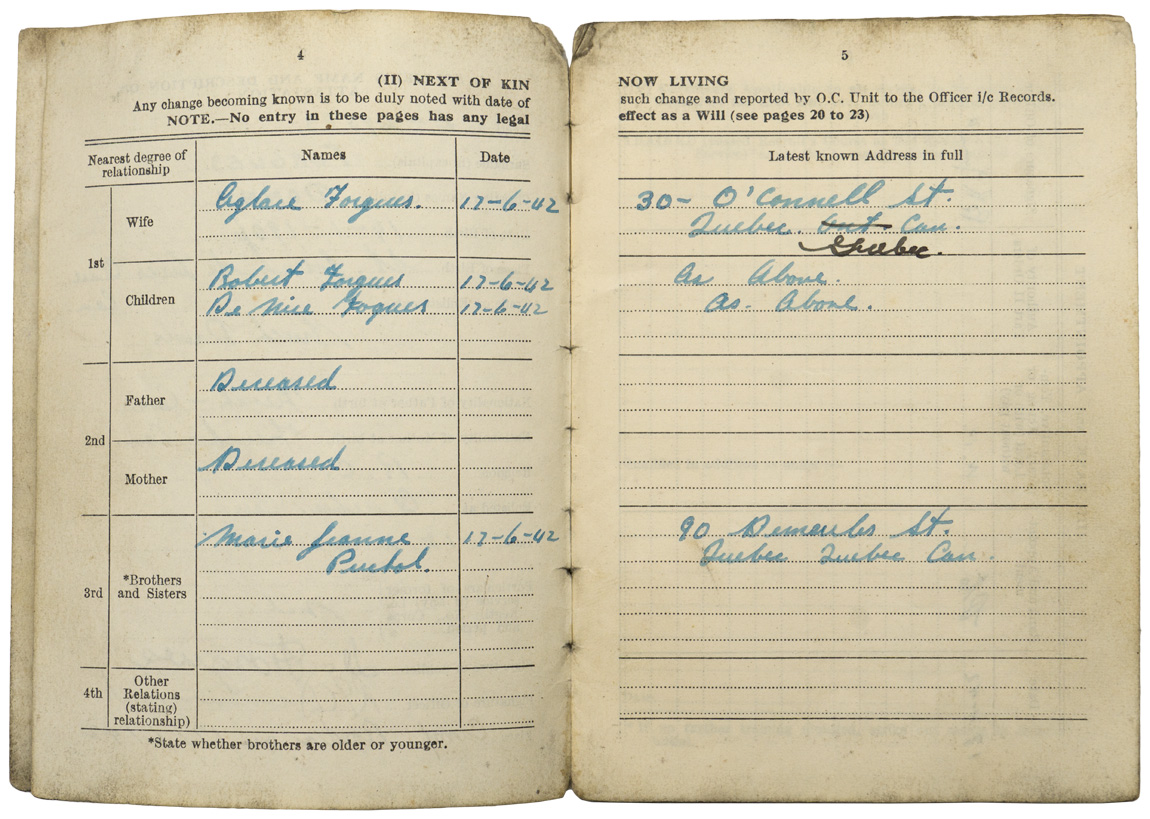 4
(II) NEXT OF KIN
Any change becoming known is to be duly noted with date of
NOTE.—No entry in these pages has any legal
Nearest degree of relationship
Names
Date
1st
Wife
Aglaie Forgues.
17-6-42
Children
Robert Forgues
17-6-42
De nise Fogues
17-6-42
2nd
Father
Deseased
Mother
Deseased
3rd
*Brothers and Sisters
Marie Jeanne
17-6-42
4th
Other Relations (stating) relationship)
*State whether brothers are older or younger.
5
NOW LIVING
such change and reported by O.C. Unit to the Officer i/c Records.
effect as a Will (see pages 20 to 23)
Latest known Address in full
30- O'Connell St.
Quebec. Ont Can.
Quebec.
As Above.
As. Above.
90 St.
Quebec Quebec Can.